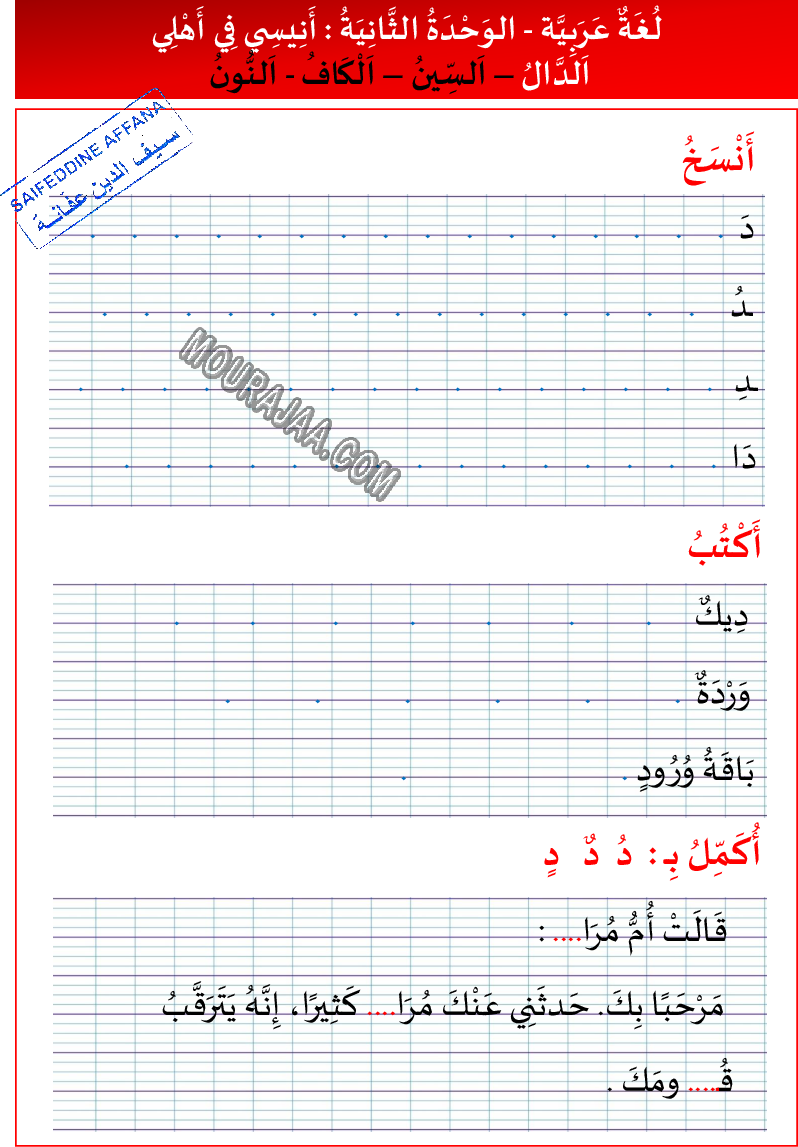 لُغَةٌ عَرَبِيَّة - الوَحْدَةُ الثَّانِيَةُ : أَنِيسِي فِي أَهْلِي
اَلدَّالُ – اَلسِّينُ – اَلْكَافُ - اَلنُّونُ
SAIFEDDINE AFFANA
سيف الدين عفانة
أَنْسَخُ
دَ
ـدُ
ـدِ
دَا
MOURAJAA.COM
أَكْتُبُ
دِيكٌ
وَرْدَةٌ
بَاقَةُ وُرُودٍ
أُكَمِّلُ بِـ : دُ دٌ دٍ
قَالَتْ أُمُّ مُرَا.... :
مَرْحَبًا بِكَ. حَدثَنِي عَنْكَ مُرَا.... كَثِيرًا، إِنَّهُ يَتَرَقَّبُ
قُـ.... ومَكَ .